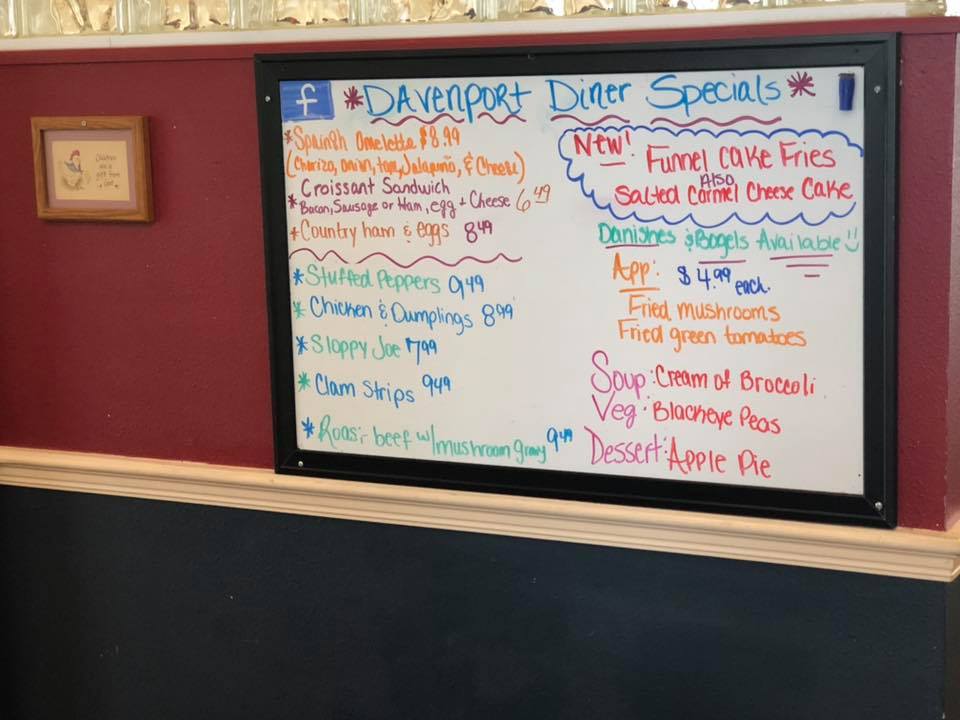 f
*DAVENPORT Diner Specials*
*Spainsh Omelette $8.99
(Chorizo, onion, tom, Jalapeño, & Cheese)
* Croissant Sandwich
Bacon, Sausage or Ham, egg + Cheese 6.49
*Country ham & eggs 8.49
*Stuffed Peppers 9.49
*Chicken & Dumplings 8.99
*Sloppy Joe 7.99
*Clam Strips 9.49
*Roast beef w/mushroom gravy 9.49
New! Funnel Cake Fries
Also
Salted Carmel Cheese Cake
Danishes & Bagels Available
App: $4.99 each.
Fried mushrooms
Fried green tomatoes
Soup: Cream of Broccoli
Veg: Blackeye Peas
Dessert: Apple Pie
Children
are a
gift from
God